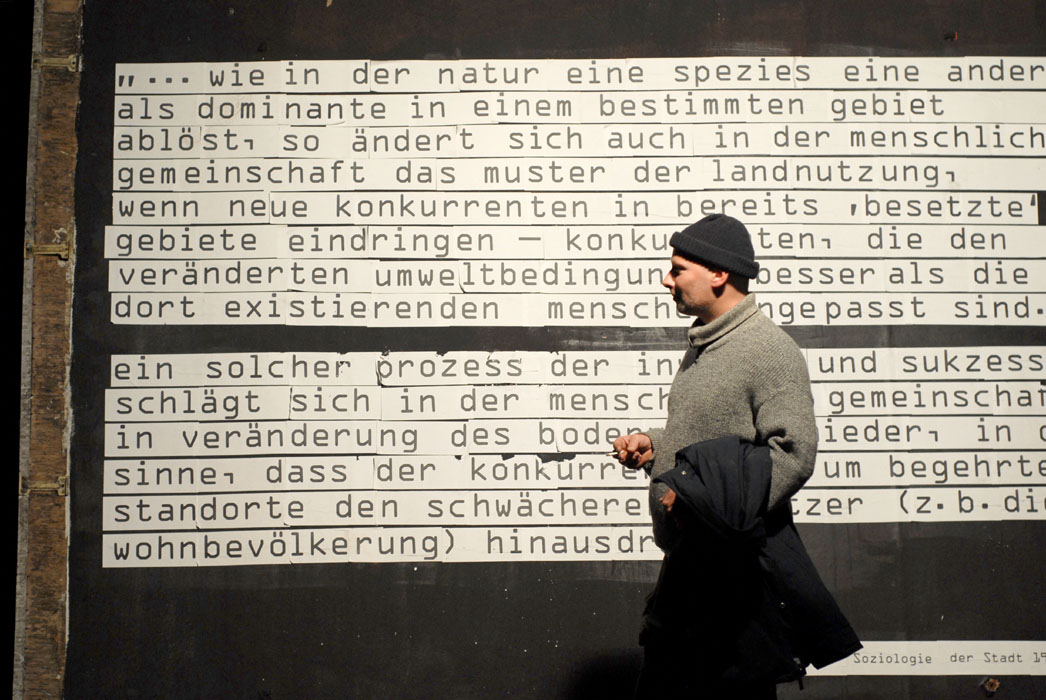 „... wie in der natur eine spezies eine ander
als dominante in einem bestimmten gebiet
ablöst, so ändert sich auch in der menschlich
gemeinschaft das muster der landnutzung,
wenn neue konkurrenten in bereits ‚besetzte‘
gebiete eindringen — konku ten, die den
veränderten umweltbedingun besser als die
dort existierenden mensch ngepasst sind.
ein solcher prozess der in und sukzess
schlägt sich in der mensch gemeinschaf
in veränderung des boden ieder, in
sinne, dass der konkurre um begehrte
standorte den schwächere tzer (z.b.die
wohnbevölkerung) hinausdr
Soziologie der Stadt 19